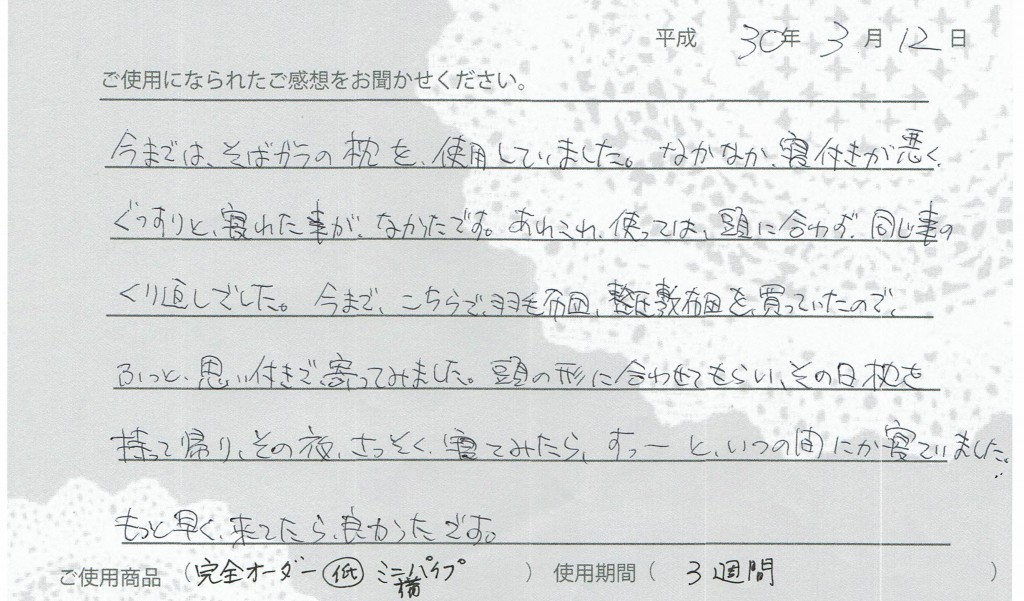 平成 30年 3月 12日
ご使用になられたご感想をお聞かせください。
今までは、そばガラの枕を、使用していました。なかなか、寝付きが悪く、
ぐっすりと、寝れた事が、なかたです。あれこれ、使っては、頭に合わず、同じ事の
くり返しでした。今まで、こちらで、羽毛布団、整圧敷布団を、買っていたので、
ふっと、思い付きで寄ってみました。頭の形に合わせてもらい、その日枕を
持って帰り、その夜、さっそく、寝てみたら、すっーと、いつの間にか寝ていました。
もっと早く、来てたら、良かったです。
ご使用商品 (完全オーダー 低 ミニパイプ 横) 使用期間 (3週間)